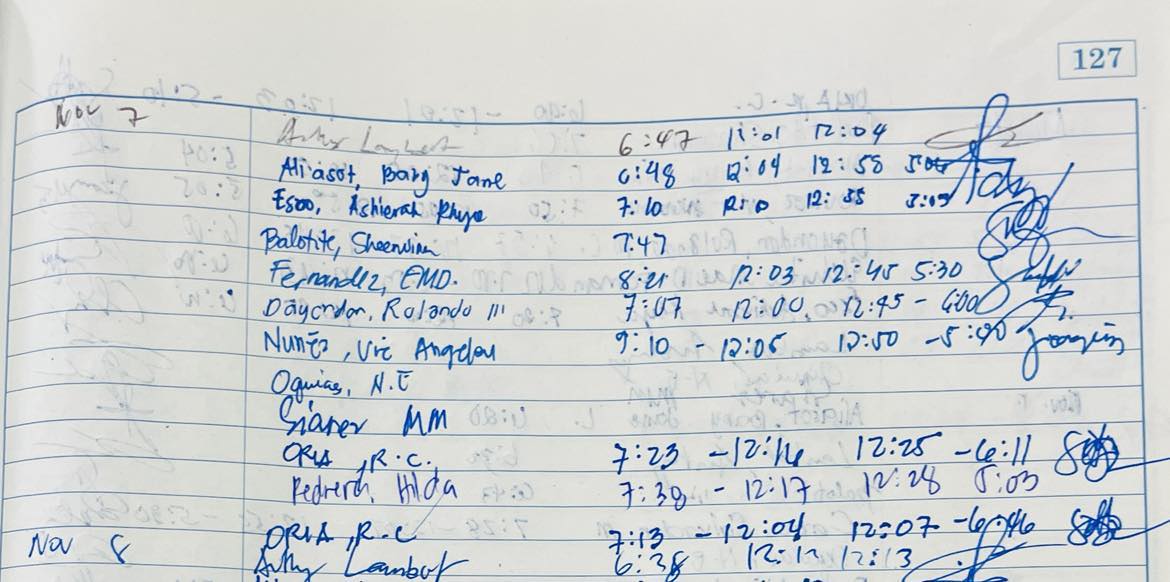 127
Nov 7
6:47 11:01 12:04
Aliasot, Barg Jane 6:48 12:04 12:58
Esoo, Ashierah Rhye 7:10 12:55
Balotite, Sheenvina 7:47
Fernandez, EMD. 8:21 12:03 12:45 5:30
Dayondon, Rolando III 7:07 12:00 12:45 - 6:00
Nuñez, Vic Angelou 9:10 - 12:05 12:50 - 5:40
Oquias, N.E
Sianer MM
ORIA, R.C. 7:23 - 12:16 12:25 - 6:11
Pedrera, Hilda 7:38 - 12:17 12:28 5:03
ORIA, R.C 7:13 - 12:04 12:07 - 6:46
Nov 8 6:38 12:13 12:13